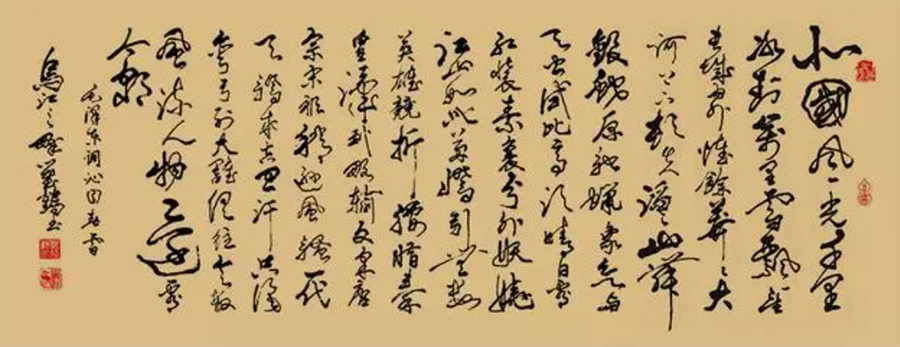 北國風光千里
冰封萬里雪飄望
長城內外惟餘莽莽大
河上下頓失滔滔山舞
銀蛇原馳蠟象欲與
天公試比高須晴日看
紅裝素裹分外妖嬈
江山如此多嬌引無數
英雄競折腰惜秦
皇漢武略輸文采唐
宗宋祖稍遜風騷一代
天驕成吉思汗只識
彎弓射大雕俱往矣數
風流人物還看
今朝
毛澤東詞沁園春雪
烏江之畔書